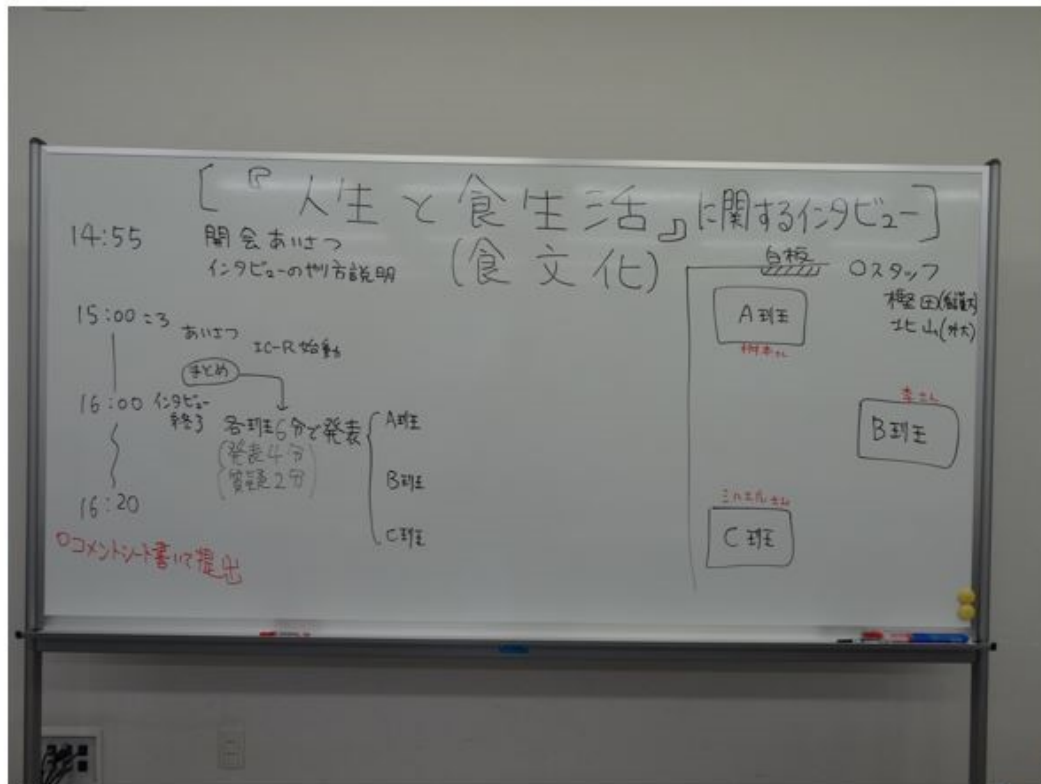 [『人生と食生活』に関するインタビュー]
(食文化)
14:55 開会あいさつ
インタビューのやり方説明
15:00ころ あいさつ
IC-R始動
まとめ
16:00 インタビュー
終了
各班6分で発表
(発表4分
質疑2分)
A班
B班
C班
16:20
○コメントシート書いて提出
白板
○スタッフ
樫田
北山(外大)
A班
李さん
B班
ミハエルさん
C班